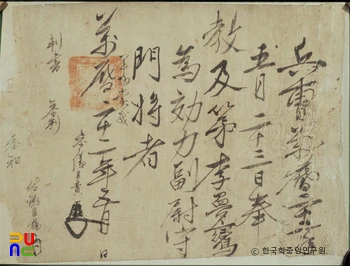 兵曹萬曆二十二年
五月二十三日奉
教及第李
為効力副尉守
門將者
萬曆二十二年五月 日
判書
參判
參議
參知
佐郎
© 한국학중앙연구원